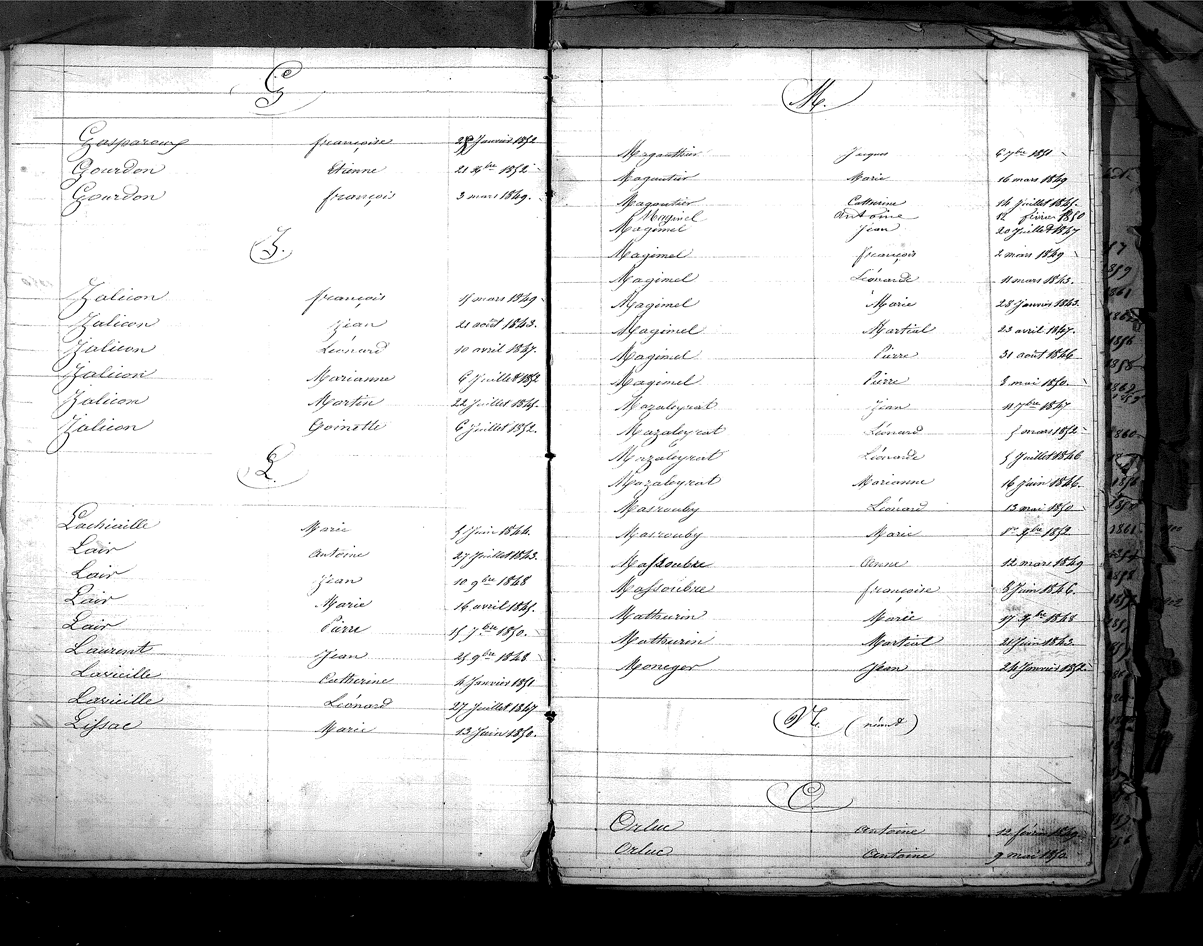 G
Gasparoux françoise 28 Janvier 1852
Gourdon Etienne 21 xbre 1852
Gourdon françois 3 mars 1849.
J.
Jalicon françois 15 mars 1849
Jalicon Jean 21 août 1843.
Jalicon Léonard 10 avril 1847.
Jalicon Marianne 6 Juillet 1852
Jalicon Martin 22 Juillet 1845.
Jalicon Toinette 6 Juillet 1852.
L.
Lachieille Marie 5 Juin 1844.
Lair antoine 27 Juillet 1843.
Lair Jean 10 9bre 1848
Lair Marie 16 avril 1845.
Lair Pierre 15 7bre 1850.
Laurent Jean 25 9bre 1848
Lavieille Catherine 4 Janvier 1851
Lavieille Léonard 27 Juillet 1847
Lissac Marie 13 Juin 1850.
M.
Magauthier Jacques 6 7bre 1851
Magautier Marie 16 mars 1849
Magautier Catherine 14 Juillet 1845.
Magimel antoine 12 février 1850
Magimel Jean 20 Juillet 1847
Magimel françois 2 mars 1849
Magimel Léonarde 11 mars 1843.
Magimel Marie 28 Janvier 1843.
Magimel Martial 23 avril 1847.
Magimel Pierre 31 août 1846
Magimel Pierre 8 mai 1850.
Mazaleyrat Jean 11 7bre 1847
Mazaleyrat Léonard 5 mars 1852
Mazaleyrat Léonarde 5 Juillet 1846
Mazaleyrat Marianne 16 Juin 1846.
Masrouby Léonard 13 mai 1850
Masrouby Marie 1er 9bre 1852
Massoubre anne 12 mars 1849
Massoubre françoise 8 Juin 1846.
Mathurin Marie 17 9bre 1848
Mathurin Martial 21 Juin 1843.
Moneger Jean 24 Janvier 1852
N. (néant)
O
Orluc antoine 12 février 1849
Orluc antoine 9 mai 1850